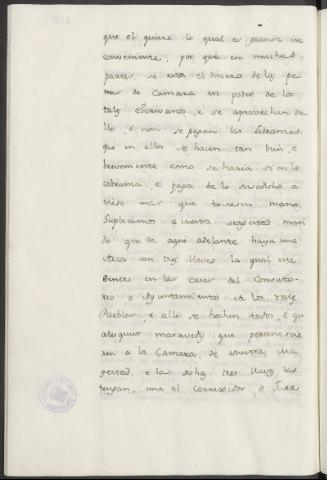 que el quiere lo qual es grande in
conveniente, por que en muchas
partes se esta el dinero de las pe
nas de Camara en poder de los
tales Escrivanos, e se aprovechan de
llo, e non se pagan las libranzas
que en ellos se hacen tan bien, e
brevemente como se haria si en la
cobranza, e paga de lo susodicho o
viese mas que toviesen mano.
Suplicamos a vuestra magestad man
de que de aqui adelante haya una
Arca con tres llaves la qual esté
dentro en las casas del Consisto-
rio o Ayuntamiento de los tales
Pueblos, e alli se hechen todos, e qua
alesquier maravedis que pertenescie
ren a la Camara de vuestra Ma
gestad, e las dichas tres llaves las
tengan, una el Corregidor, o Juez